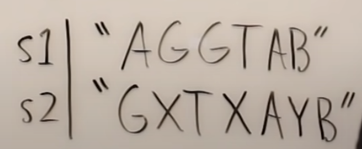 s1 | "AGGTAB"
s2 | "GXTXAYB"